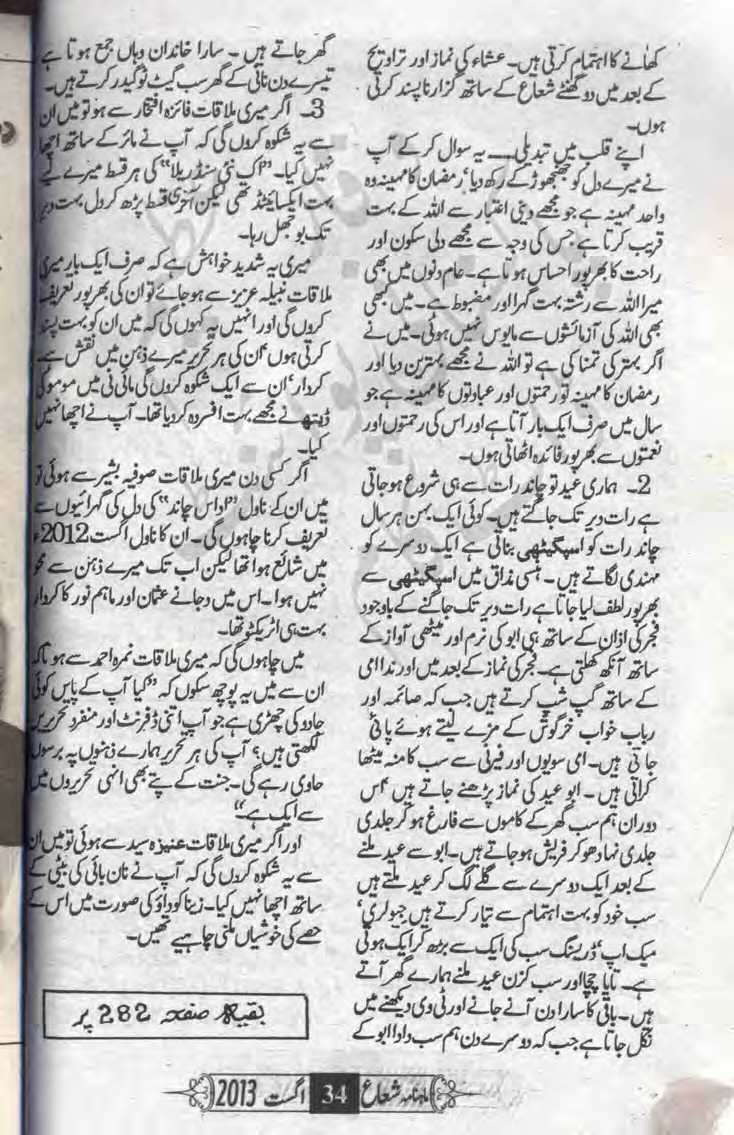 کھانے کا اہتمام کرتی ہیں۔ عشاء کی نماز اور تراویح
کے بعد میں دو گھنٹے شعاع کے ساتھ گزارنا پسند کرتی
ہوں۔
اپنے قلب میں تبدیلی۔۔۔۔ یہ سوال کر کے آپ
نے میرے دل کو جھنجھوڑ کے رکھ دیا‘ رمضان کا مہینہ وہ
واحد مہینہ ہے جو مجھے دینی اعتبار سے اللہ کے بہت
قریب کرتا ہے جس کی وجہ سے مجھے دلی سکون اور
راحت کا بھرپور احساس ہوتا ہے۔ عام دنوں میں بھی
میرا اللہ سے رشتہ بہت گہرا اور مضبوط ہے۔ میں کبھی
بھی اللہ کی آزمائشوں سے مایوس نہیں ہوئی۔ میں نے
اگر بہتر کی تمنا کی ہے تو اللہ نے مجھے بہترین دیا اور
رمضان کا مہینہ تو رحمتوں اور عبادتوں کا مہینہ ہے جو
سال میں صرف ایک بار آتا ہے اور اس کی رحمتوں اور
نعمتوں سے بھرپور فائدہ اٹھاتی ہوں۔
2۔ ہماری عید تو چاند رات سے ہی شروع ہو جاتی
ہے رات دیر تک جاگتے ہیں۔ کوئی ایک بہن ہر سال
چاند رات کو اسپگیٹھی بناتی ہے ایک دوسرے کو
مہندی لگاتے ہیں۔ ہنسی مذاق میں اسپگیٹھی سے
بھرپور لطف لیا جاتا ہے رات دیر تک جاگنے کے باوجود
فجر کی اذان کے ساتھ ہی ابو کی نرم اور میٹھی آواز کے
ساتھ آنکھ کھلتی ہے۔ فجر کی نماز کے بعد میں اور ندا امی
کے ساتھ گپ شپ کرتے ہیں جب کہ صائمہ اور
رباب خواب خرگوش کے مزے لیتے ہوئے پائی
جاتی ہیں۔ امی سویوں اور فیرنی سے سب کا منہ میٹھا
کراتی ہیں۔ ابو عید کی نماز پڑھنے جاتے ہیں‘ اس
دوران ہم سب گھر کے کاموں سے فارغ ہو کر جلدی
جلدی نہا دھو کر فریش ہو جاتے ہیں۔ ابو سے عید ملنے
کے بعد ایک دوسرے سے گلے لگ کر عید ملتے ہیں
سب خود کو بہت اہتمام سے تیار کرتے ہیں جیولری‘
میک اپ‘ ڈریسنگ سب کی ایک سے بڑھ کر ایک ہوتی
ہے۔ تایا چچا اور سب کزن عید ملنے ہمارے گھر آتے
ہیں۔ باقی کا سارا دن آنے جانے اور ٹی وی دیکھنے میں
نکل جاتا ہے جب کہ دوسرے دن ہم سب دادا ابو کے
گھر جاتے ہیں۔ سارا خاندان وہاں جمع ہوتا ہے
تیسرے دن نانی کے گھر سب گیٹ ٹو گیدر کرتے ہیں۔
3۔ اگر میری ملاقات فائزہ افتخار سے ہو تو میں ان
سے یہ شکوہ کروں گی کہ آپ نے مائر کے ساتھ اچھا
نہیں کیا۔ ”اک نئی سنڈریلا“ کی ہر قسط میرے لیے
بہت ایکسائیٹڈ تھی لیکن آخری قسط پڑھ کر دل بہت دیر
تک بوجھل رہا۔
میری یہ شدید خواہش ہے کہ صرف ایک بار میری
ملاقات نبیلہ عزیز سے ہو جائے تو ان کی بھرپور تعریف
کروں گی اور انہیں یہ کہوں گی کہ میں ان کو بہت پسند
کرتی ہوں‘ ان کی ہر تحریر میرے ذہن میں نقش ہے۔
کردار‘ ان سے ایک شکوہ کروں گی مائی نی میں مومو کی
ڈیتھ نے مجھے بہت افسردہ کر دیا تھا۔ آپ نے اچھا نہیں
کیا۔
اگر کسی دن میری ملاقات صوفیہ بشیر سے ہوئی تو
میں ان کے ناول ”اداس چاند“ کی دل کی گہرائیوں سے
تعریف کرنا چاہوں گی۔ ان کا ناول اگست 2012ء
میں شائع ہوا تھا لیکن اب تک میرے ذہن سے محو
نہیں ہوا۔ اس میں وجانے عثمان اور ماہم نور کا کردار
بہت ہی اٹریکٹو تھا۔
میں چاہوں گی کہ میری ملاقات نمرہ احمد سے ہو تاکہ
ان سے میں یہ پوچھ سکوں کہ ”کیا آپ کے پاس کوئی
جادو کی چھڑی ہے جو آپ اتنی ڈفرنٹ اور منفرد تحریریں
لکھتی ہیں؟ آپ کی ہر تحریر ہمارے ذہنوں پہ برسوں
حاوی رہے گی۔ جنت کے پتے بھی انہی تحریروں میں
سے ایک ہے۔“
اور اگر میری ملاقات عنیزہ سید سے ہوئی تو میں ان
سے یہ شکوہ کروں گی کہ آپ نے نان بائی کی بیٹی کے
ساتھ اچھا نہیں کیا۔ زینا کو داؤ کی صورت میں اس کے
حصے کی خوشیاں ملنی چاہیے تھیں۔
بقیہ صفحہ 282 پر
ماہنامہ شعاع 34 اگست 2013